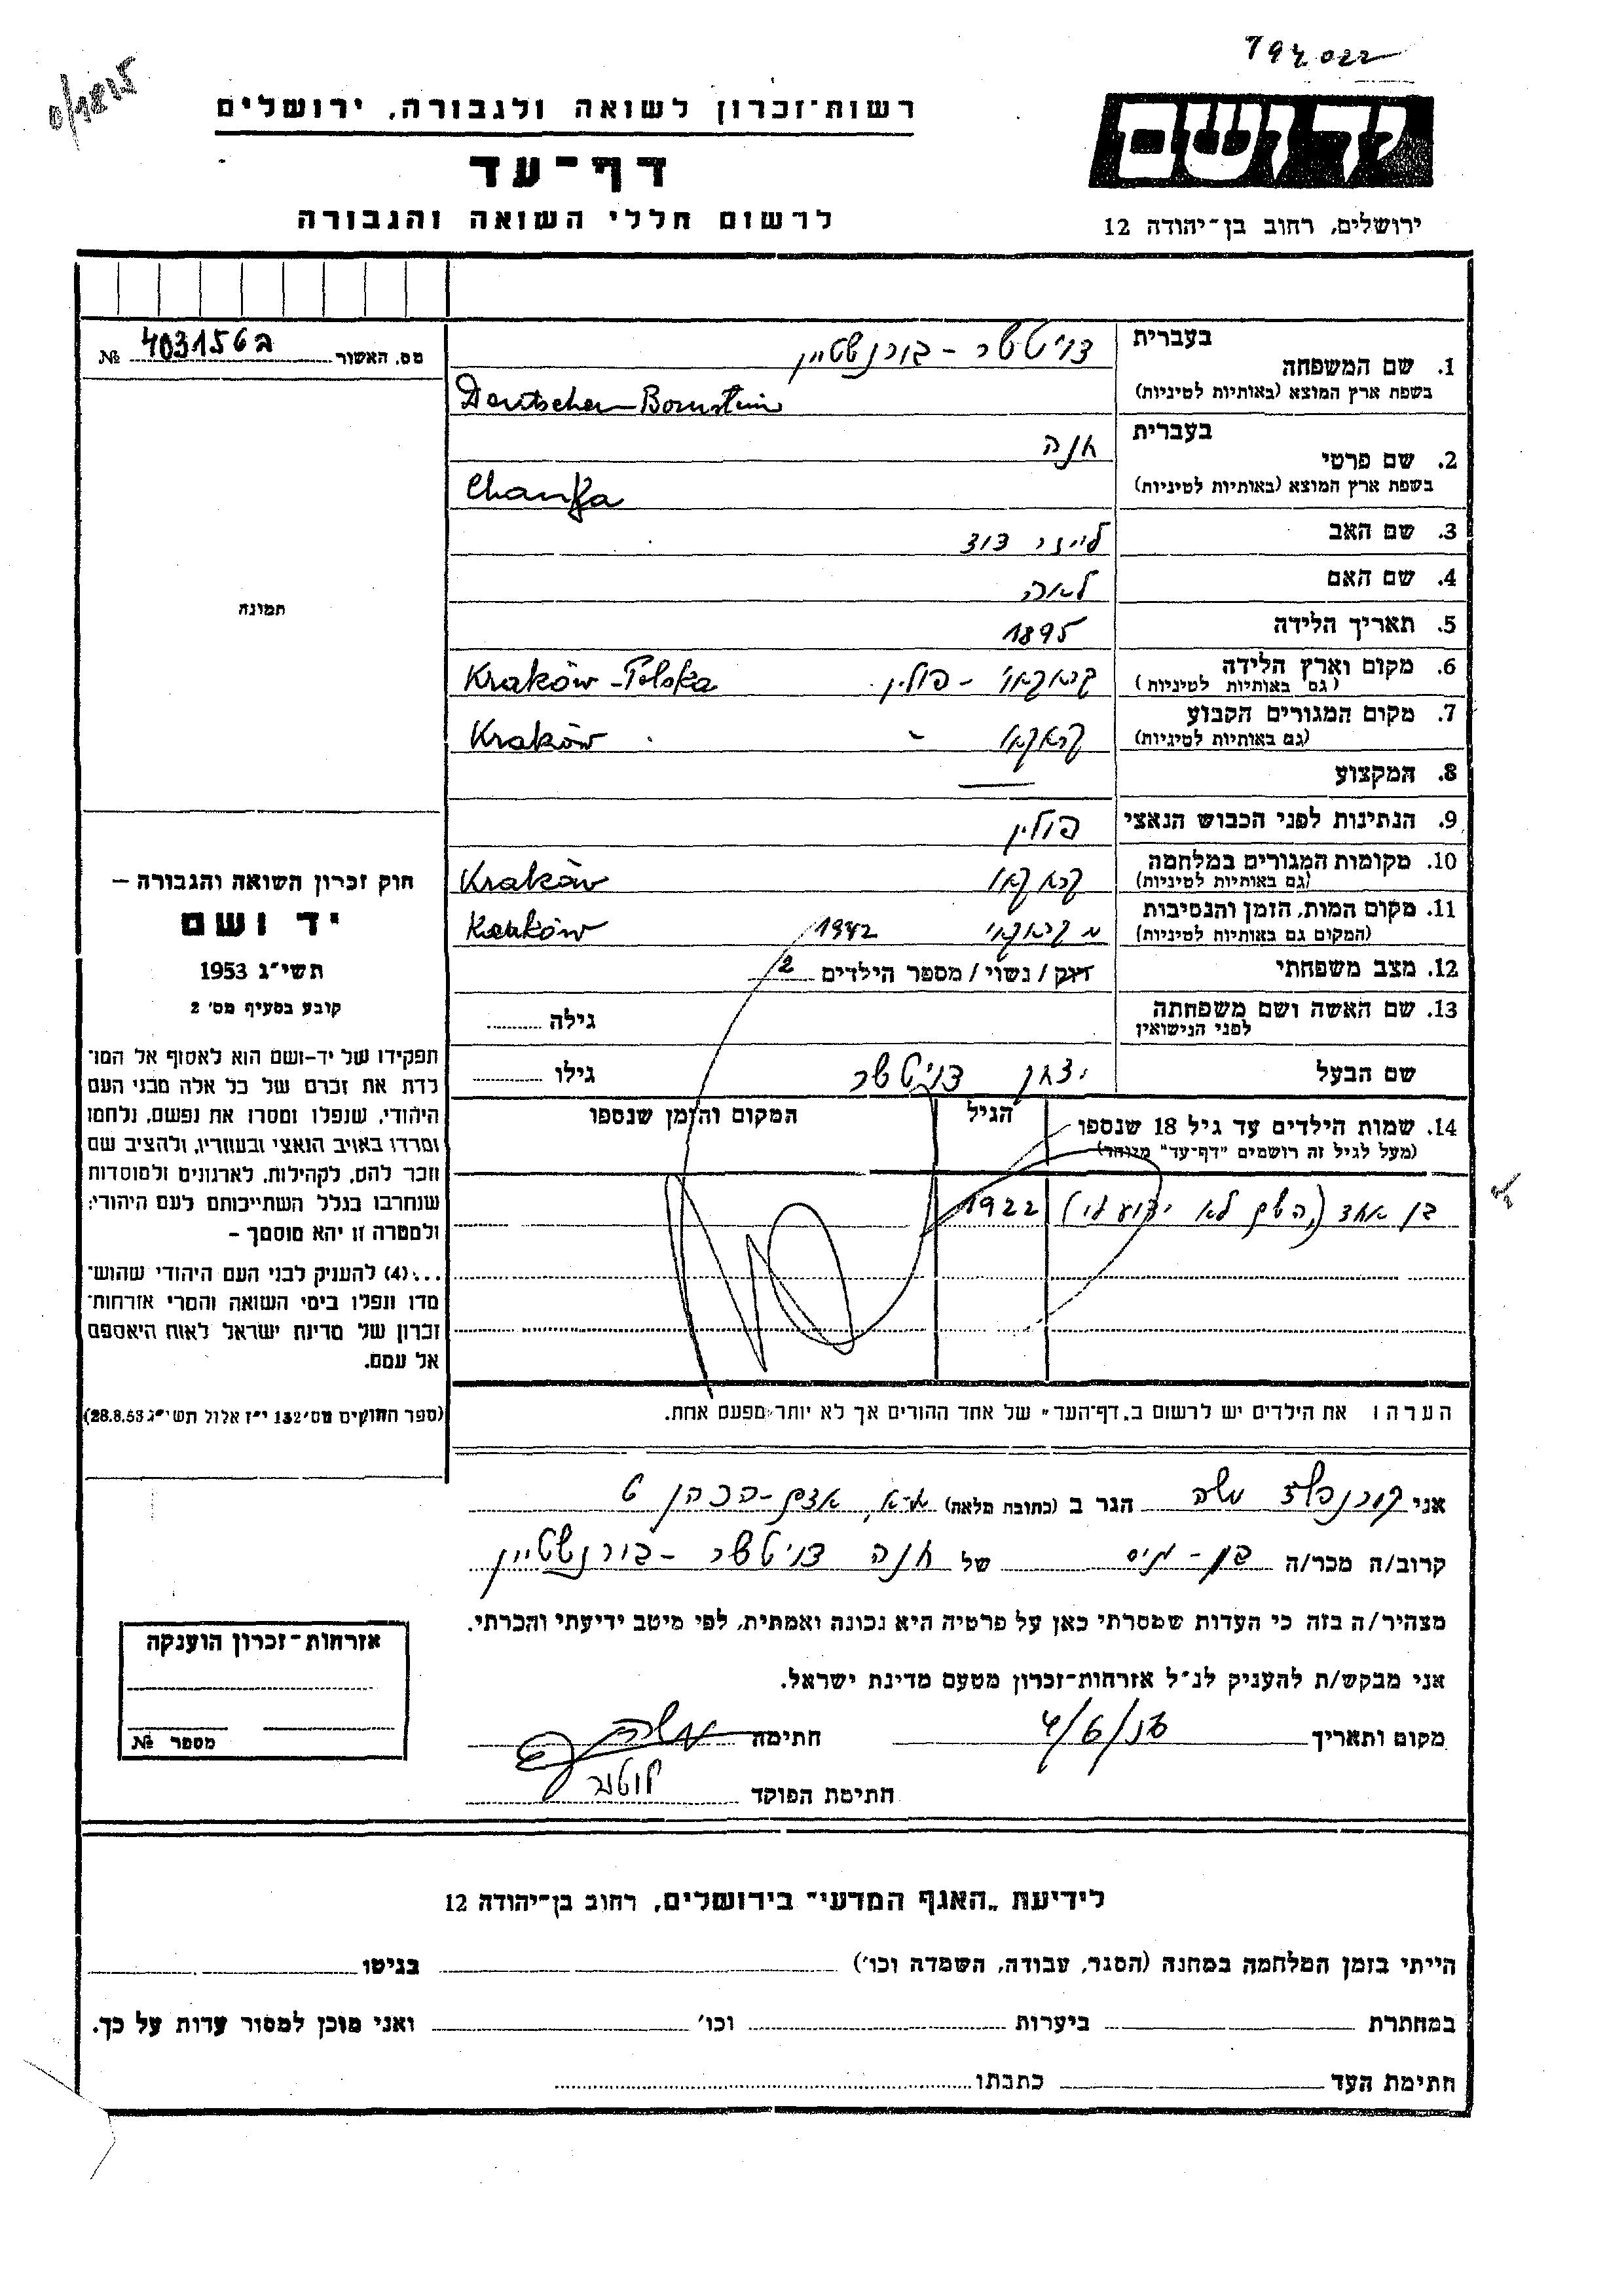 794022
יד ושם
ירושלים, רחוב בן־יהודה 12
רשות־זכרון לשואה ולגבורה, ירושלים
דף־עד
לרשום חללי השואה והגבורה
מס. האשור 403156ב №
תמונה
בעברית
1. שם המשפחה דויטשר - בורנשטיין
בשפת ארץ המוצא (באותיות לטיניות) Deutscher-Bornstein
בעברית
2. שם פרטי חנה
בשפת ארץ המוצא (באותיות לטיניות) Chanka
3. שם האב לייזר דוד
4. שם האם לאה
5. תאריך הלידה 1895
6. מקום וארץ הלידה קראקאו - פולין Kraków-Polska
(גם באותיות לטיניות)
7. מקום המגורים הקבוע קראקאו Kraków
(גם באותיות לטיניות)
8. המקצוע —
9. הנתינות לפני הכבוש הנאצי פולין
10. מקומות המגורים במלחמה קראקאו Kraków
(גם באותיות לטיניות)
11. מקום המות, הזמן והנסיבות קראקאו 1942 Kraków
(המקום גם באותיות לטיניות)
12. מצב משפחתי רווק / נשוי / מספר הילדים 2
13. שם האשה ושם משפחתה גילה
לפני הנישואין
שם הבעל יצחק דויטשר גילו
14. שמות הילדים עד גיל 18 שנספו הגיל המקום והזמן שנספו
(מעל לגיל זה רושמים "דף־עד" מיוחד)
בן אחד (השם לא ידוע לי) 1922
הערה: את הילדים יש לרשום ב„דף־העד" של אחד ההורים אך לא יותר מפעם אחת.
חוק זכרון השואה והגבורה –
יד ושם
תשי"ג 1953
קובע בסעיף מס' 2
תפקידו של יד-ושם הוא לאסוף אל המו־
לדת את זכרם של כל אלה מבני העם
היהודי, שנפלו ומסרו את נפשם, נלחמו
ומרדו באויב הנאצי ובעוזריו, ולהציב שם
וזכר להם, לקהילות, לארגונים ולמוסדות
שנחרבו בגלל השתייכותם לעם היהודי;
ולמטרה זו יהא מוסמך –
...(4) להעניק לבני העם היהודי שהוש־
מדו ונפלו בימי השואה והמרי אזרחות־
זכרון של מדינת ישראל לאות היאספם
אל עמם.
(ספר החוקים מס' 132 י"ז אלול תשי"ג 28.8.53)
אני קורנפלד משה הגר ב (כתובת מלאה) ת-א, אדם-הכהן 6
קרוב/ה מכר/ה בן-גיס של חנה דויטשר - בורנשטיין
מצהיר/ה בזה כי העדות שמסרתי כאן על פרטיה היא נכונה ואמתית, לפי מיטב ידיעתי והכרתי.
אני מבקש/ת להעניק לנ"ל אזרחות־זכרון מטעם מדינת ישראל.
מקום ותאריך 4/6/ חתימה
חתימת הפוקד
אזרחות־זכרון הוענקה
מספר №
לידיעת „האגף המדעי" בירושלים, רחוב בן־יהודה 12
הייתי בזמן המלחמה במחנה (הסגר, עבודה, השמדה וכו') בגיטו
במחתרת ביערות וכו' ואני מוכן למסור עדות על כך.
חתימת העד כתבתו